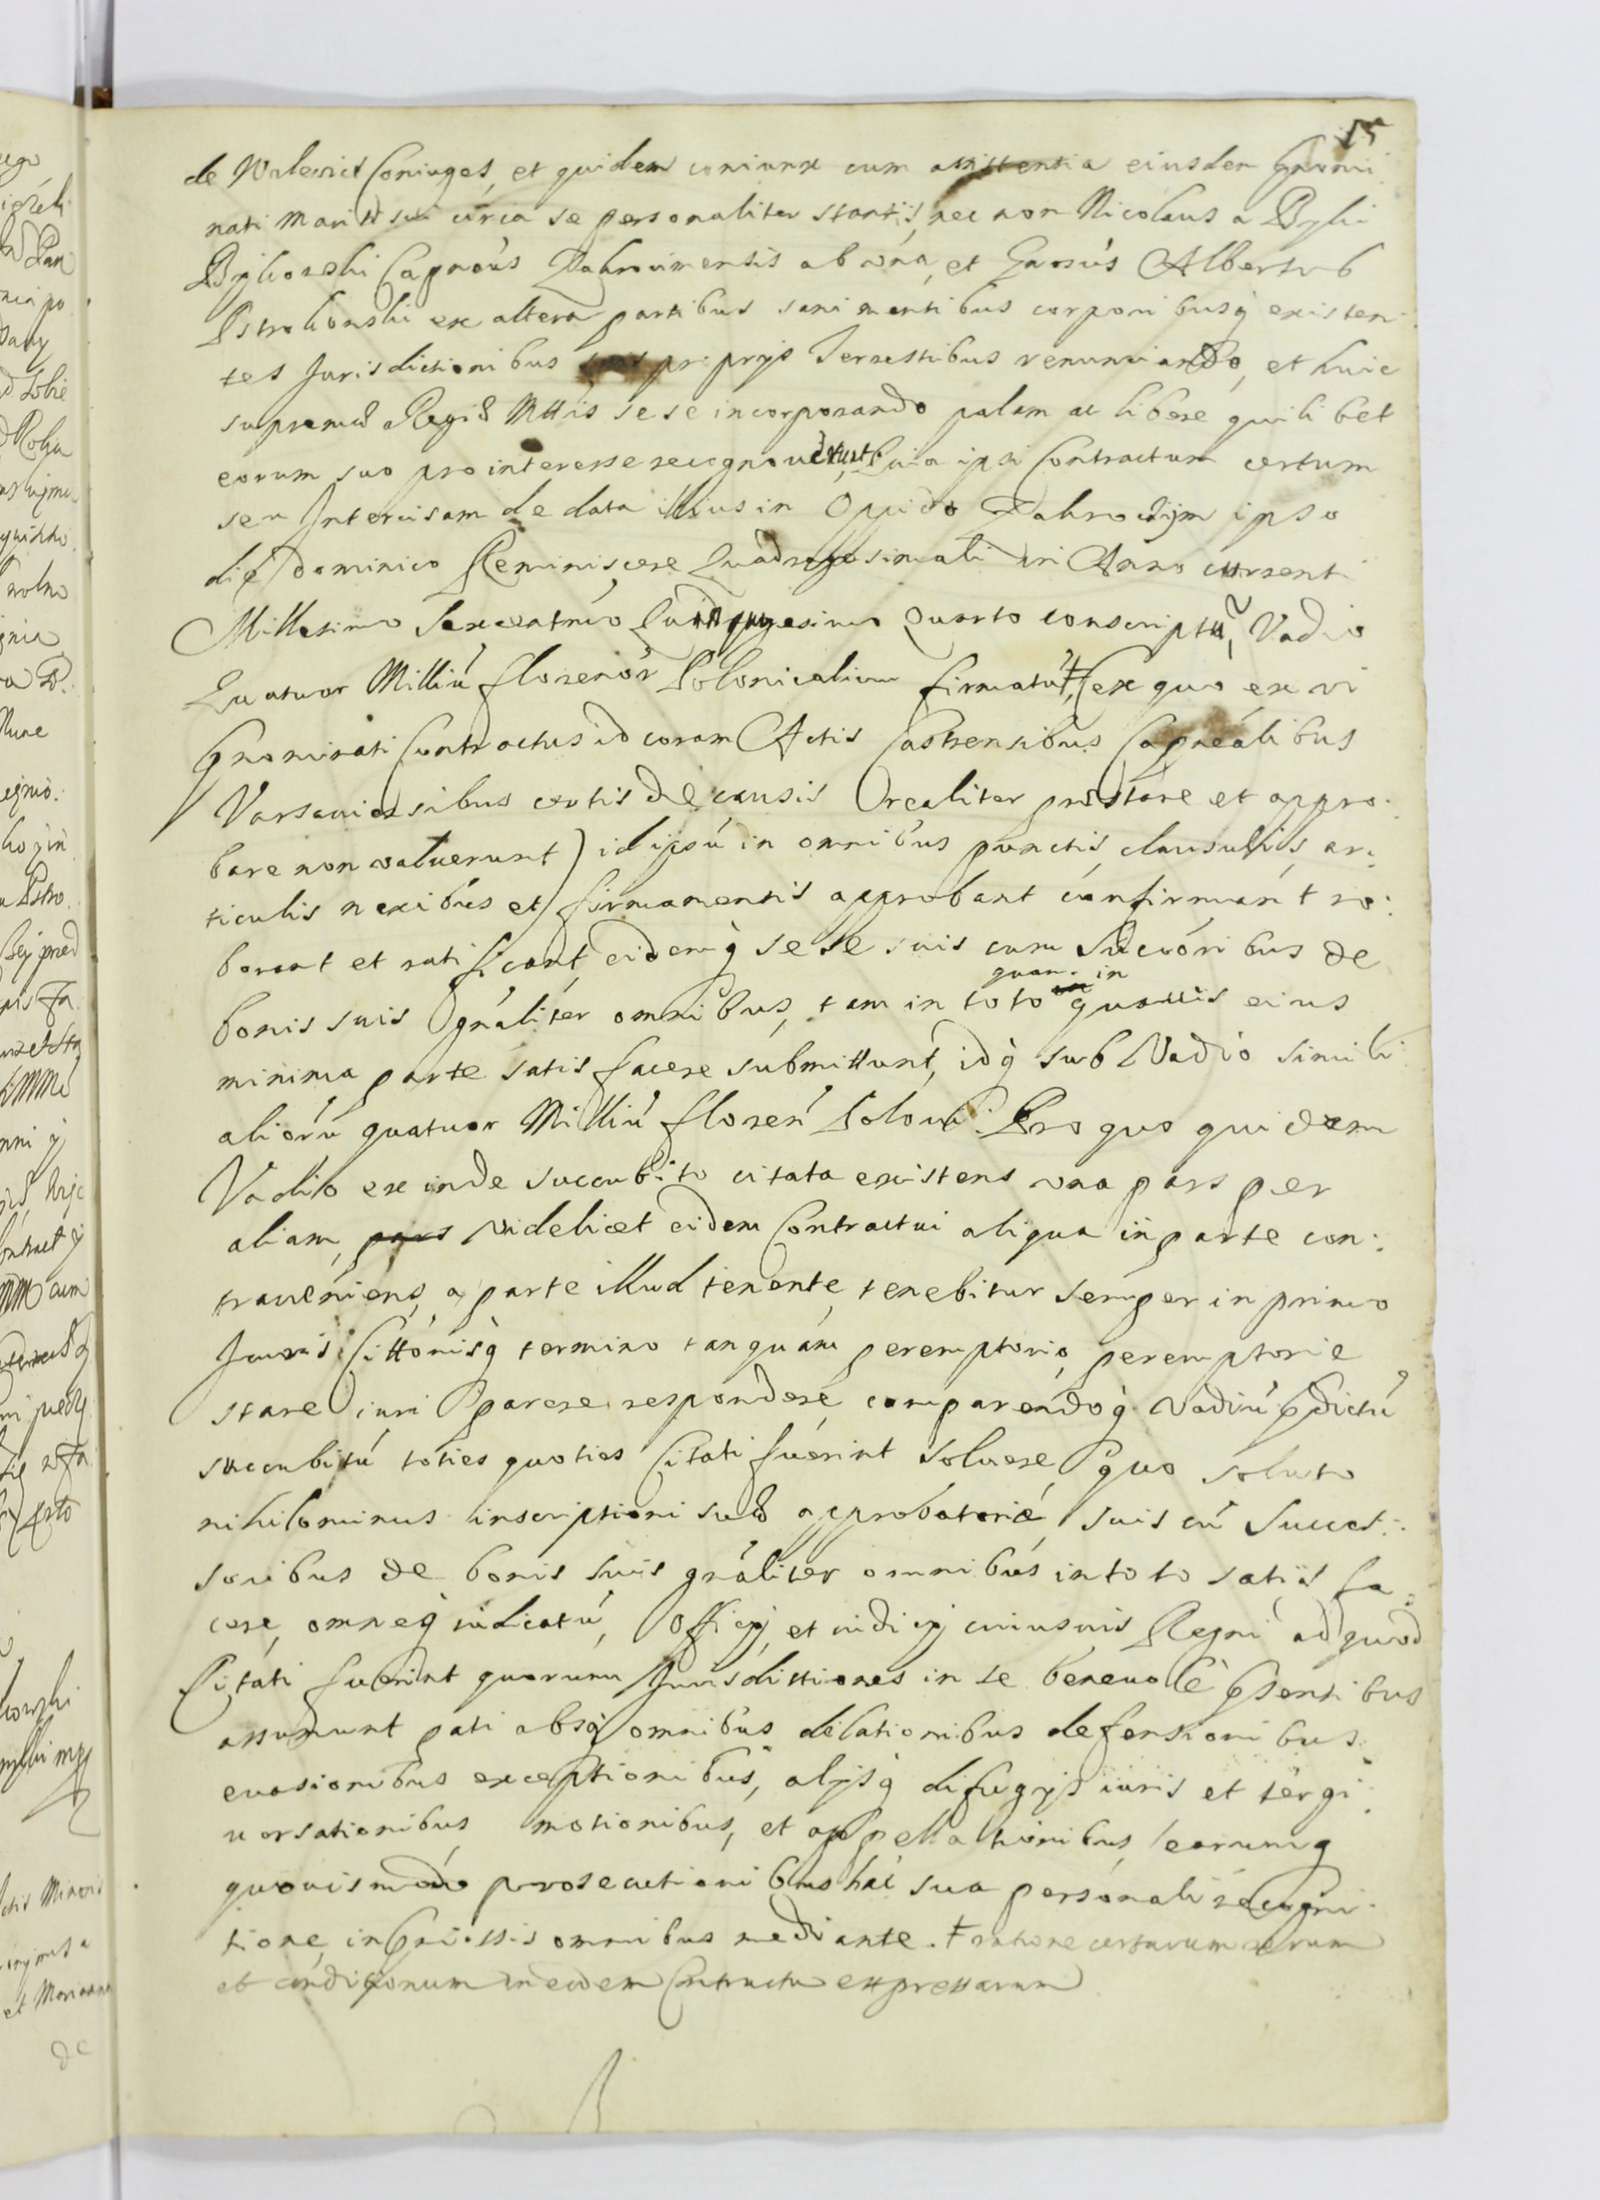 55
de Walewicz Coniuges, et quidem coniunx cum assistentia eiusdem Gnomi
nati Mariti sui circa se personaliter stantis, nec non Nicolaus a Bylic
Byliczki Capneus Zakrocimensis ab una, et Gnosus Albertus
Pstrokonski ex altera partibus sani mentibus corporibusq existen
tes Jurisdictionibus suis proprijs Terrestribus renunciando, et huic
supremæ Regiæ Mttis sese incorporando palam ac libere quilibet
eorum suo pro interesse recognoverunt, Quia ipsi Contractum certum
seu Intercisam de data illius in Opido Zakroczym ipso
die dominico Reminiscere Quadragesimali in Anno currenti
Millesimo Sexcentmo Quinquagesimo Quarto conscriptũ, Vadio
Quatuor Milliú florenór Polonicalium firmatú, ‡ (ex quo ex vi
Gnominati Contractus id coram Actis Castrensibus Capnealibus
Varsaviensibus certis de causis realiter præstare et appro:
bare non valuerunt) id ipsú in omnibus punctis clausulis, ar:
ticulis nexibus et firmamentis approbant confirmant ro:
borant et ratificant, eidemq sese suis cum Succoribus de
quam in
bonis suis gnáliter omnibus, tam in toto quauis eius
minima parte satis facere submittunt, idq sub Vadio simili
aliorú quatuor Milliú floren Poloni: Pro quo quidem
Vadio exinde succubito citata existens una pars per
aliam, pars videlicet eidem Contractui aliqua in parte con:
traveniens, a parte illud tenente, tenebitur semper in primo
Juris Cittónisq termino tanquam peremptorio peremptorie
stare iuri parere respondere, comparendoq Vadiú pdictú
succubitú toties quoties Citati fuerint soluere, quo soluto
nihilominus inscriptioni suæ approbatoriæ suis cú Succes:
soribus de bonis suis gnáliter omnibus in toto satis fa:
cere, omneq iudicatú, Officij, et iudicij cuiusuis Regni ad quod
Citati fuerint quorum Jurisdittiones in se benevole psentibus
assumunt pati absq omnibus dilationibus defensionibus
evasionibus exceptionibus, alijsq difugijs iuris et tergi
uersationibus motionibus, et appellationibus, earumq
quovismodo prosecutionibus hac sua personali recogni
tione, in pmissis omnibus mediante. ‡ ratione certarum rerum
et conditionum in eodem Contractu expressarum